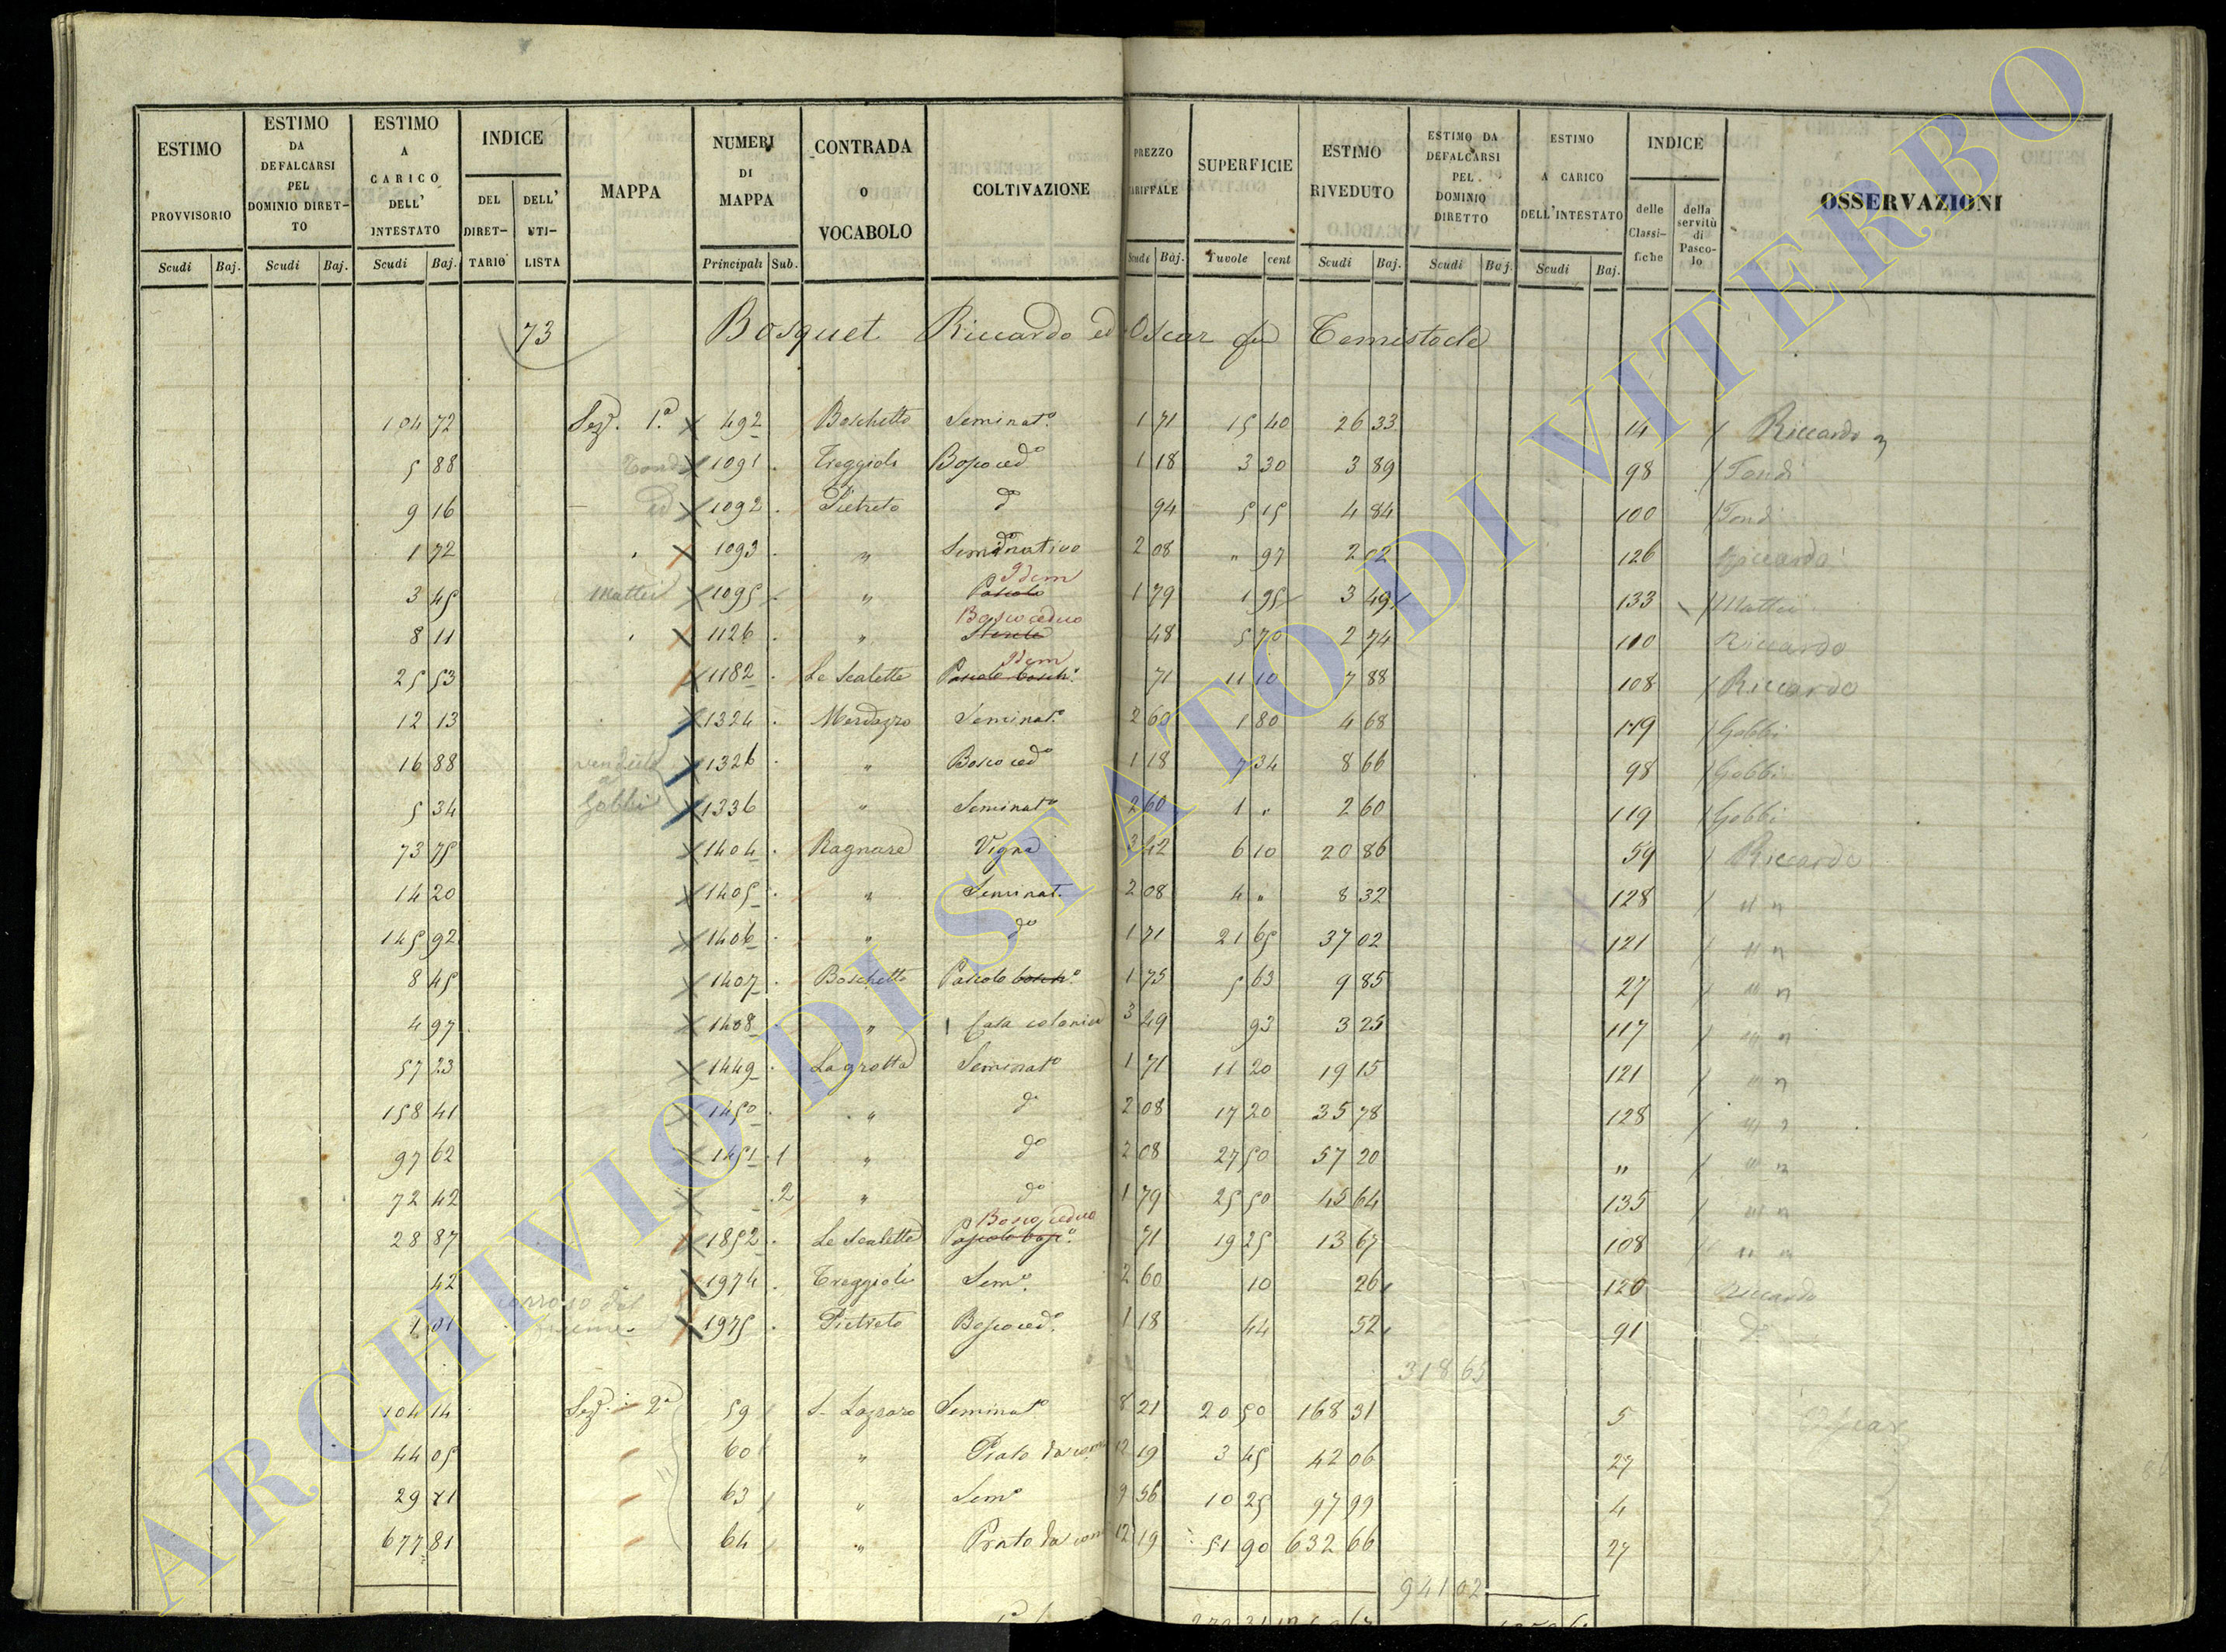 ESTIMO PROVVISORIO | ESTIMO DA DEFALCARSI PEL DOMINIO DIRET-TO | ESTIMO A CARICO DELL' INTESTATO | INDICE DEL DIRET-TARIO | DELL' UTI-LISTA | MAPPA | NUMERI DI MAPPA | CONTRADA O VOCABOLO | COLTIVAZIONE | PREZZO TARIFFALE | SUPERFICIE | ESTIMO RIVEDUTO | ESTIMO DA DEFALCARSI PEL DOMINIO DIRETTO | ESTIMO A CARICO DELL'INTESTATO | INDICE delle Classi-fiche | della servitù di Pasco-lo | OSSERVAZIONI
Scudi Baj. Scudi Baj. Scudi Baj. Principali Sub. Scudi Baj. Tavole cent Scudi Baj. Scudi Baj. Scudi Baj.
73 Bosquet Riccardo ed Oscar fu Temistocle
104 72 Sez. 1ª 492 Boschetto Seminat.º 1 71 15 40 26 33 14 Riccardo
5 88 Tondi 1091 Treggioli Bosco ced.º 1 18 3 30 3 89 98 Tondi
9 16 id 1092 Pietreto dº 94 5 15 4 84 100 Tondi
1 72 1093 " Seminativo 2 08 " 97 2 02 126 Riccardo
3 45 Mattei 1095 " Pascolo Idem 1 79 1 95 3 49 133 Mattei
8 11 1126 " Sterile Bosco ceduo 48 5 70 2 74 110 Riccardo
25 53 1182 Le Scalette Pascolo bosch.º Idem 71 11 10 7 88 108 Riccardo
12 13 1324 Merdazzo Seminat.º 2 60 1 80 4 68 119 Gobbi
16 88 venduto a 1326 " Bosco cedº 1 18 7 34 8 66 98 Gobbi
5 34 Gobbi 1336 " Seminatº 2 60 1 " 2 60 119 Gobbi
73 75 1404 Ragnare Vigna 3 42 6 10 20 86 59 Riccardo
14 20 1405 " Seminat. 2 08 4 " 8 32 128 " "
145 92 1406 " dº 1 71 21 65 37 02 121 " "
8 45 1407 Boschetto Pascolo bosch.º 1 75 5 63 9 85 27 " "
4 97 1408 " Casa colonica 3 49 93 3 25 117 " "
57 23 1449 La grotta Seminatº 1 71 11 20 19 15 121 " "
158 41 1450 " dº 2 08 17 20 35 78 128 " "
97 62 1451 1 " dº 2 08 27 50 57 20 " " "
72 42 2 " dº 1 79 25 50 45 64 135 " "
28 87 1852 Le Scalette Pascolo bosc.º Bosco ceduo 71 19 25 13 67 108 " "
42 1974 Treggioli Sem.º 2 60 10 26 120 Riccardo
1 01 corroso dal fiume 1975 Pietreto Bosco ced. 1 18 44 52 91 dº
318 65
104 14 Sez. 2ª 59 S. Lazzaro Seminatº 8 21 20 50 168 31 5 Oscar
44 05 60 " Prato da 12 19 3 45 42 06 27
29 71 63 " Semº 9 56 10 25 97 99 4
677 81 64 " Prato da 12 19 51 90 632 66 27
941 02
ARCHIVIO DI STATO DI VITERBO